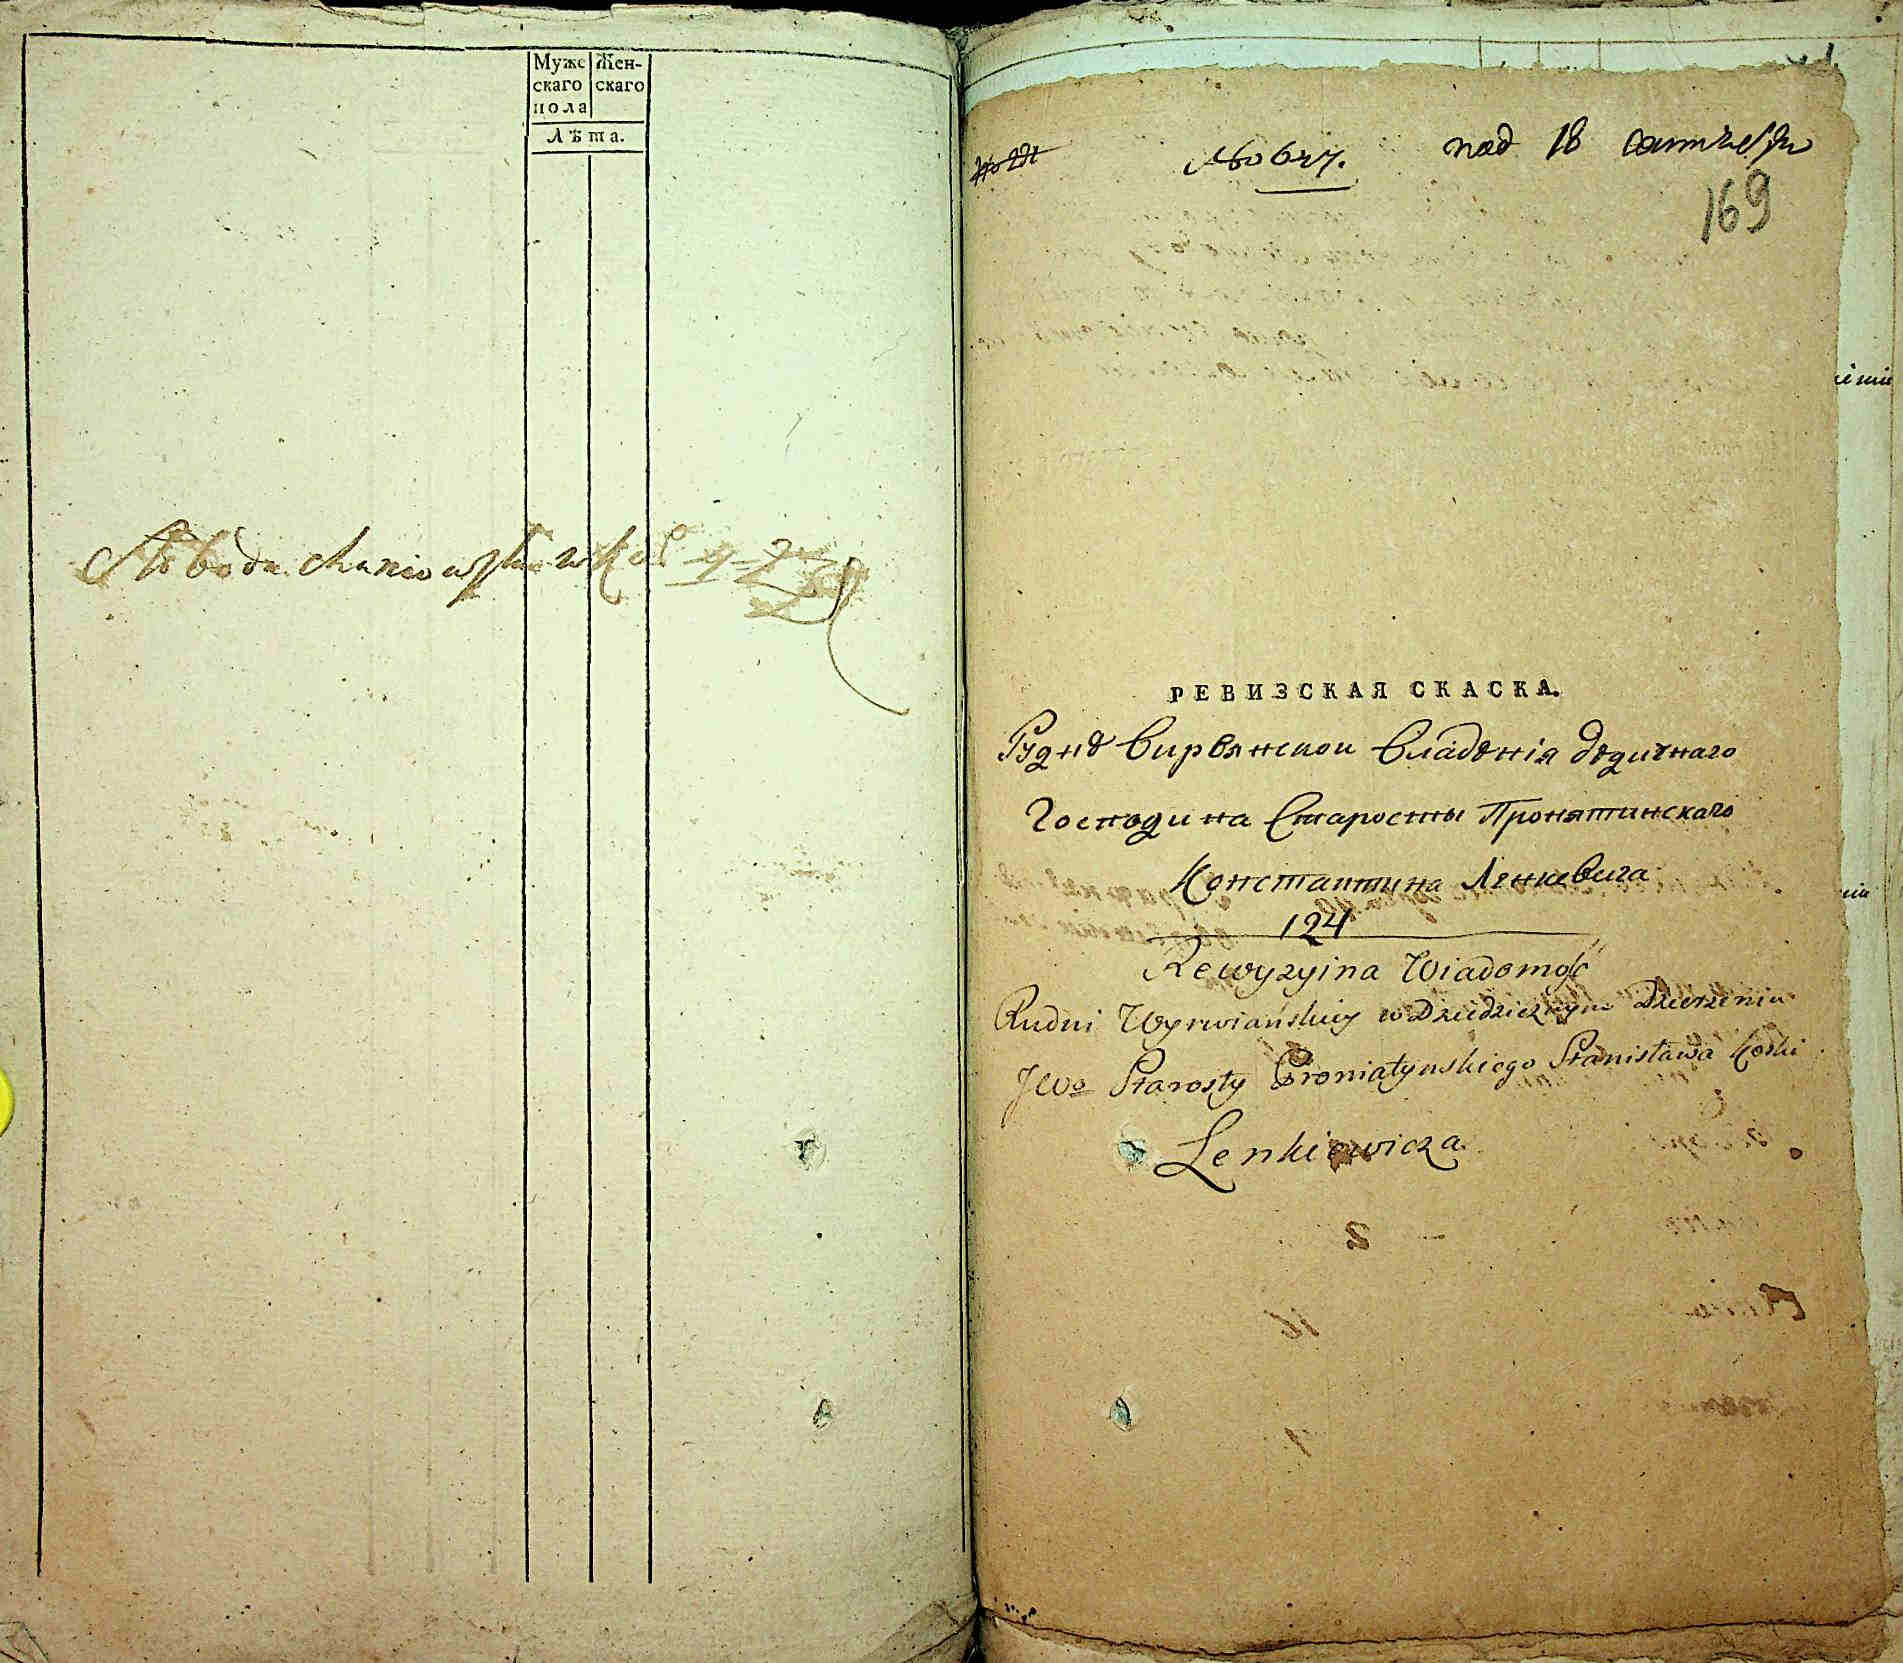 Муже Жен-
скаго скаго
пола
Лѣта.
под 18
169
РЕВИЗСКАЯ СКАСКА.
Рудне Вирвянскои владѣния дедичнаго
Господина Старосты Пронятинскаго
Константина Ленкевича
124
Rewyzyina Wiadomość
Rudni Wyrwiańskiey w Dziedzicznym Dzierżeniu
JWo Starosty Proniatynskiego Stanisława Kostki
Lenkiewicza